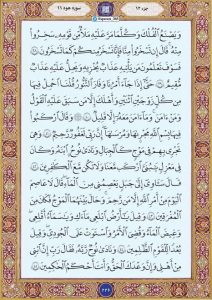 جزء ١٢
سوره هود ١١
وَيَصْنَعُ ٱلْفُلْكَ وَكُلَّمَا مَرَّ عَلَيْهِ مَلَأٌ مِّن قَوْمِهِۦ سَخِرُوا۟
مِنْهُ قَالَ إِن تَسْخَرُوا۟ مِنَّا فَإِنَّا نَسْخَرُ مِنكُمْ كَمَا تَسْخَرُونَ ٣٨
فَسَوْفَ تَعْلَمُونَ مَن يَأْتِيهِ عَذَابٌ يُخْزِيهِ وَيَحِلُّ عَلَيْهِ عَذَابٌ
مُّقِيمٌ ٣٩ حَتَّىٰٓ إِذَا جَآءَ أَمْرُنَا وَفَارَ ٱلتَّنُّورُ قُلْنَا ٱحْمِلْ فِيهَا
مِن كُلٍّ زَوْجَيْنِ ٱثْنَيْنِ وَأَهْلَكَ إِلَّا مَن سَبَقَ عَلَيْهِ ٱلْقَوْلُ
وَمَنْ ءَامَنَ وَمَآ ءَامَنَ مَعَهُۥٓ إِلَّا قَلِيلٌ ٤٠ وَقَالَ ٱرْكَبُوا۟
فِيهَا بِسْمِ ٱللَّهِ مَجْر۪ىٰهَا وَمُرْسَىٰهَآ إِنَّ رَبِّى لَغَفُورٌ رَّحِيمٌ ٤١
وَهِىَ تَجْرِى بِهِمْ فِى مَوْجٍ كَٱلْجِبَالِ وَنَادَىٰ نُوحٌ ٱبْنَهُۥ وَكَانَ
فِى مَعْزِلٍ يَٰبُنَىَّ ٱرْكَب مَّعَنَا وَلَا تَكُن مَّعَ ٱلْكَٰفِرِينَ ٤٢
قَالَ سَـَٔاوِىٓ إِلَىٰ جَبَلٍ يَعْصِمُنِى مِنَ ٱلْمَآءِ قَالَ لَا عَاصِمَ
ٱلْيَوْمَ مِنْ أَمْرِ ٱللَّهِ إِلَّا مَن رَّحِمَ وَحَالَ بَيْنَهُمَا ٱلْمَوْجُ فَكَانَ مِنَ
ٱلْمُغْرَقِينَ ٤٣ وَقِيلَ يَٰٓأَرْضُ ٱبْلَعِى مَآءَكِ وَيَٰسَمَآءُ أَقْلِعِى
وَغِيضَ ٱلْمَآءُ وَقُضِىَ ٱلْأَمْرُ وَٱسْتَوَتْ عَلَى ٱلْجُودِىِّ وَقِيلَ
بُعْدًا لِّلْقَوْمِ ٱلظَّٰلِمِينَ ٤٤ وَنَادَىٰ نُوحٌ رَّبَّهُۥ فَقَالَ رَبِّ إِنَّ ٱبْنِى
مِنْ أَهْلِى وَإِنَّ وَعْدَكَ ٱلْحَقُّ وَأَنتَ أَحْكَمُ ٱلْحَٰكِمِينَ ٤٥
٢٢٦